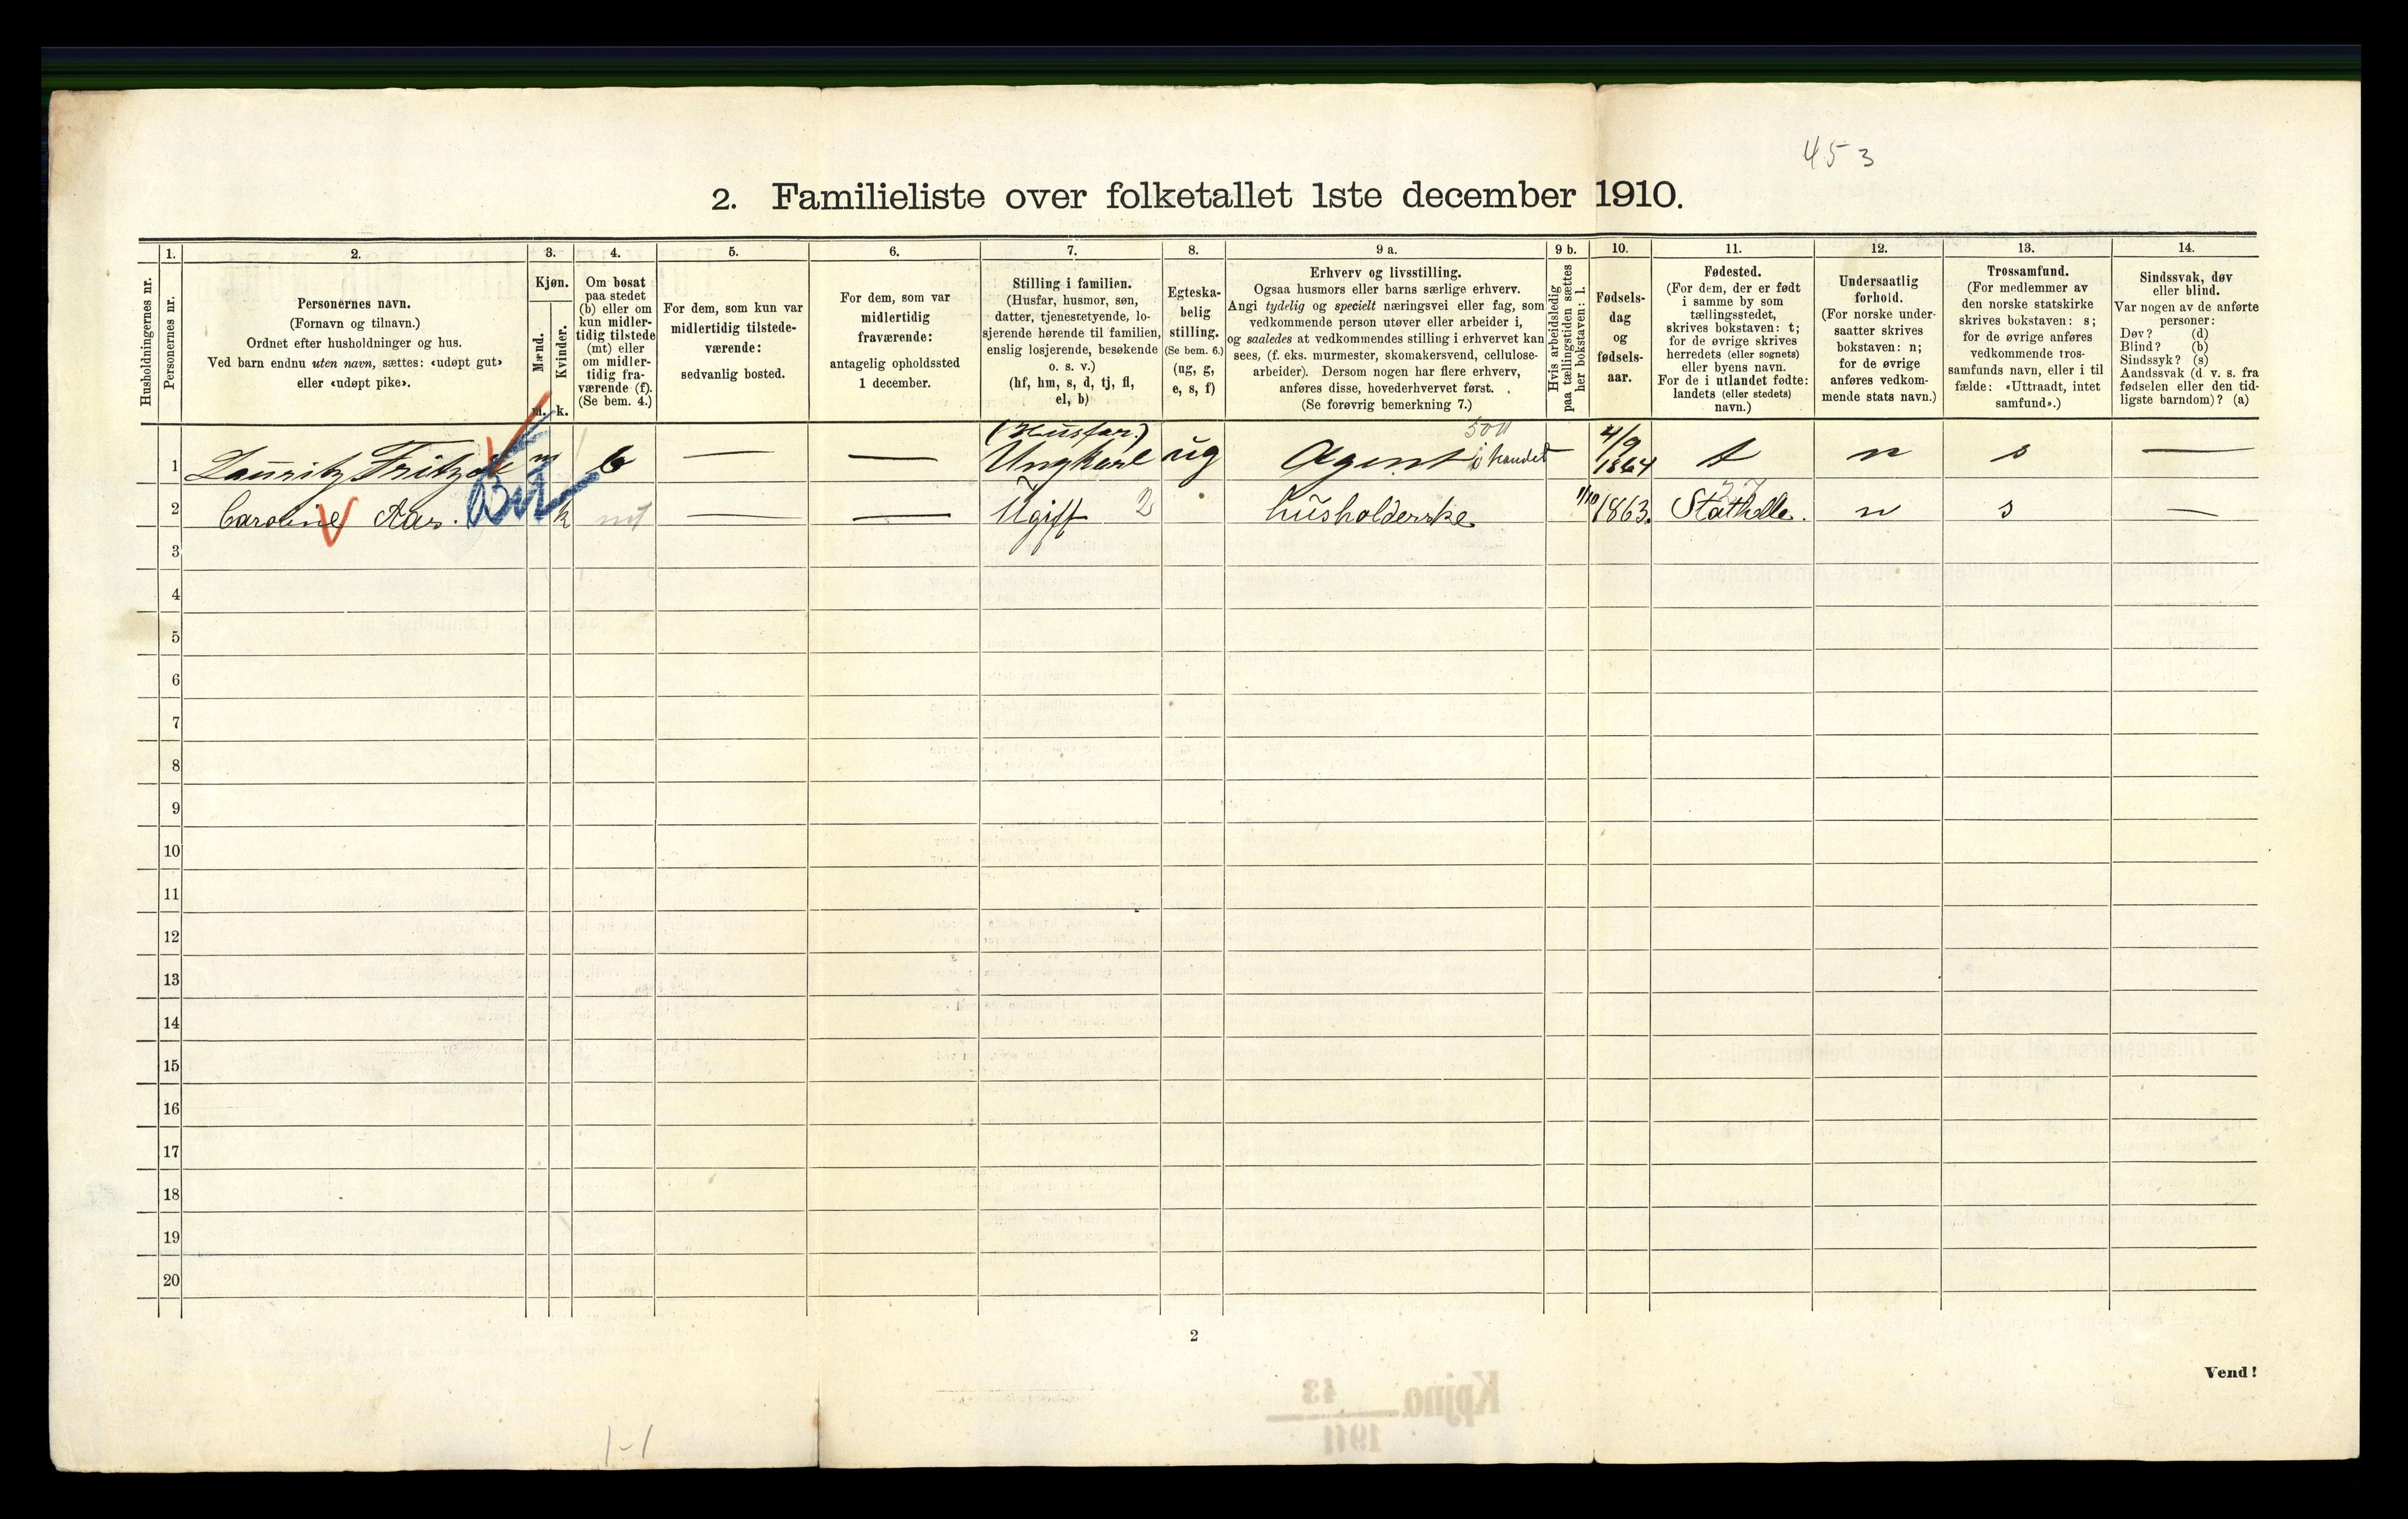 453
2. Familieliste over folketallet 1ste december 1910.
Husholdningernes nr.
1.
Personernes nr.
2.
Personernes navn.
(Fornavn og tilnavn.)
Ordnet efter husholdninger og hus.
Ved barn endnu uten navn, sættes: «udøpt gut»
eller «udøpt pike».
3.
Kjøn.
Mænd.
Kvinder.
m. k.
4.
Om bosat
paa stedet
(b) eller om
kun midler-
tidig tilstede
(mt) eller
om midler-
tidig fra-
værende (f).
(Se bem. 4.)
5.
For dem, som kun var
midlertidig tilstede-
værende:
sedvanlig bosted.
6.
For dem, som var
midlertidig
fraværende:
antagelig opholdssted
1 december.
7.
Stilling i familien.
(Husfar, husmor, søn,
datter, tjenestetyende, lo-
sjerende hørende til familien,
enslig losjerende, besøkende
o. s. v.)
(hf, hm, s, d, tj, fl,
el, b)
8.
Egteska-
belig
stilling.
(Se bem. 6.)
(ug, g,
e, s, f)
9 a.
Erhverv og livsstilling.
Ogsaa husmors eller barns særlige erhverv.
Angi tydelig og specielt næringsvei eller fag, som
vedkommende person utøver eller arbeider i,
og saaledes at vedkommendes stilling i erhvervet kan
sees, (f. eks. murmester, skomakersvend, cellulose-
arbeider). Dersom nogen har flere erhverv,
anføres disse, hovederhvervet først.
(Se forøvrig bemerkning 7.)
9 b.
Hvis arbeidsledig
paa tællingstiden sættes
her bokstaven: l.
10.
Fødsels-
dag
og
fødsels-
aar.
11.
Fødested.
(For dem, der er født
i samme by som
tællingsstedet,
skrives bokstaven: t;
for de øvrige skrives
herredets (eller sognets)
eller byens navn.
For de i utlandet fødte:
landets (eller stedets)
navn.)
12.
Undersaatlig
forhold.
(For norske under-
saatter skrives
bokstaven: n;
for de øvrige
anføres vedkom-
mende stats navn.)
13.
Trossamfund.
(For medlemmer av
den norske statskirke
skrives bokstaven: s;
for de øvrige anføres
vedkommende tros-
samfunds navn, eller i til
fælde: «Uttraadt, intet
samfund».)
14.
Sindssvak, døv
eller blind.
Var nogen av de anførte
personer:
Døv? (d)
Blind? (b)
Sindssyk? (s)
Aandssvak (d. v. s. fra
fødselen eller den tid-
ligste barndom)? (a)
(Husfar.)
1 Lauritz m b — — Ungkarl ug Agent i handel 4/9 1864 t n s —
2 Caroline Aas. k mt — — Ugift 2 husholderske 1/10 1863. Stathelle. n s —
3
4
5
6
7
8
9
10
11
12
13
14
15
16
17
18
19
20
2
Vend!
Kpjno. 43
1911
1-1